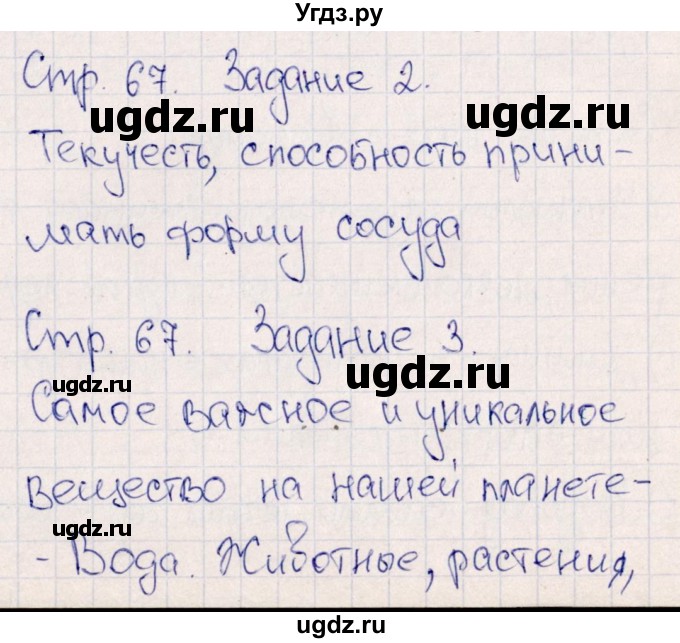 Угдз.ру
Стр. 67. Задание 2.
ugdz.ru
Текучесть, способность прини-
мать форму сосуда
Стр. 67. Задание 3.
ugdz.ru
ugdz.ru
Самое важное и уникальное
вещество на нашей планете-
ugdz.ru
- Вода. Животные, растения,
ugdz.ru